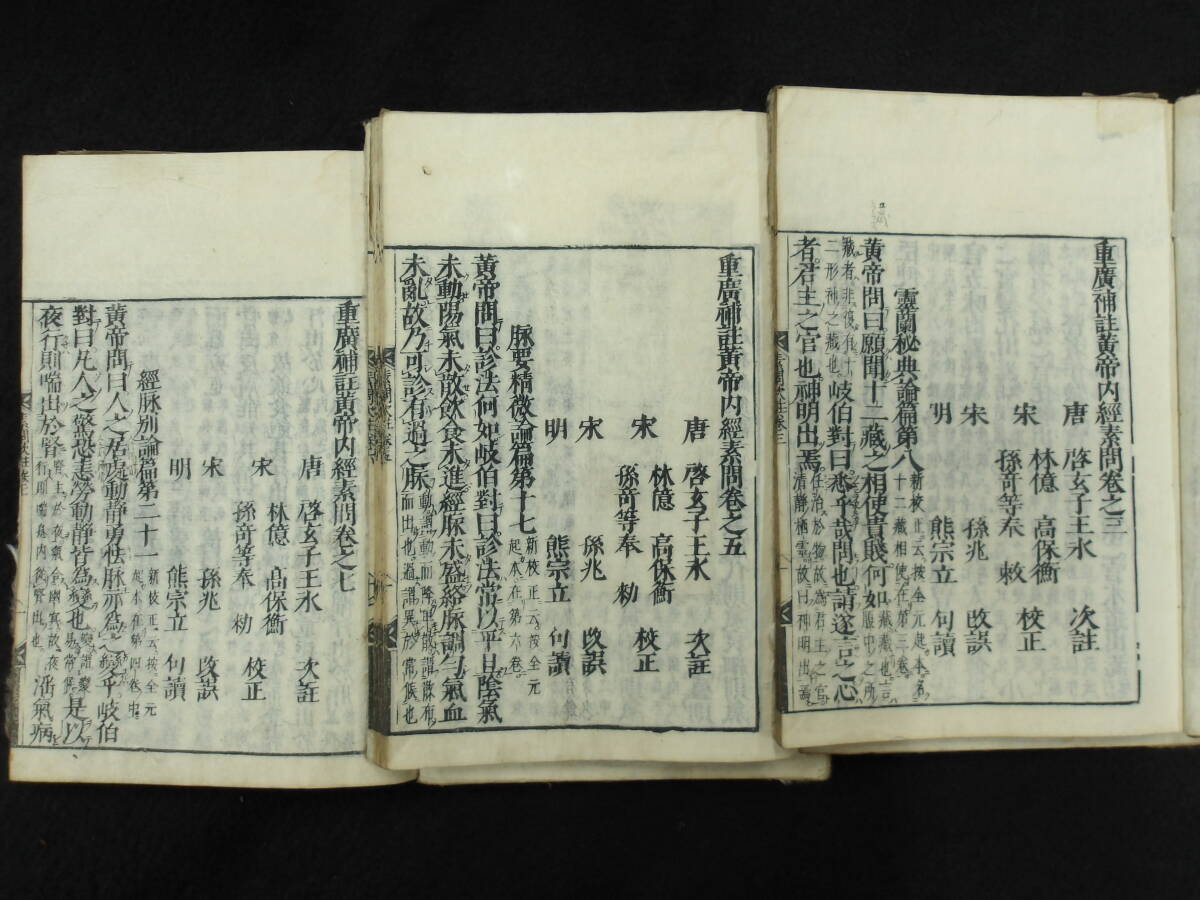 重廣補註黃帝内經素問卷之三
唐 啓玄子王氷 次註
宋 林億 高保衡
孫奇等奉 敕 校正
宋 孫兆 改誤
明 熊宗立 句讀
靈蘭秘典論篇第八 新校正云按全元起本名十二藏相使在第三卷
黃帝問曰願聞十二藏之相使貴賤何如
二形神之藏也岐伯對曰悉乎哉問也請遂言之心
者君主之官也神明出焉
重廣補註黃帝内經素問卷之五
唐 啓玄子王氷 次註
宋 林億 高保衡
孫奇等奉 勑 校正
宋 孫兆 改誤
明 熊宗立 句讀
脉要精微論篇第十七 新校正云按全元起本在第六卷
黃帝問曰診法何如岐伯對曰診法常以平旦陰氣
未動陽氣未散飲食未進經脉未盛絡脉調勻氣血
未亂故乃可診有過之脉
重廣補註黃帝内經素問卷之七
唐 啓玄子王氷 次註
宋 林億 高保衡
孫奇等奉 勑 校正
宋 孫兆 改誤
明 熊宗立 句讀
經脉別論篇第二十一 新校正云按全元起本在第四卷中
黃帝問曰人之居處動靜勇怯脉亦爲之變乎岐伯
對曰凡人之驚恐恚勞動靜皆爲變也是以
夜行則喘出於腎 淫氣病